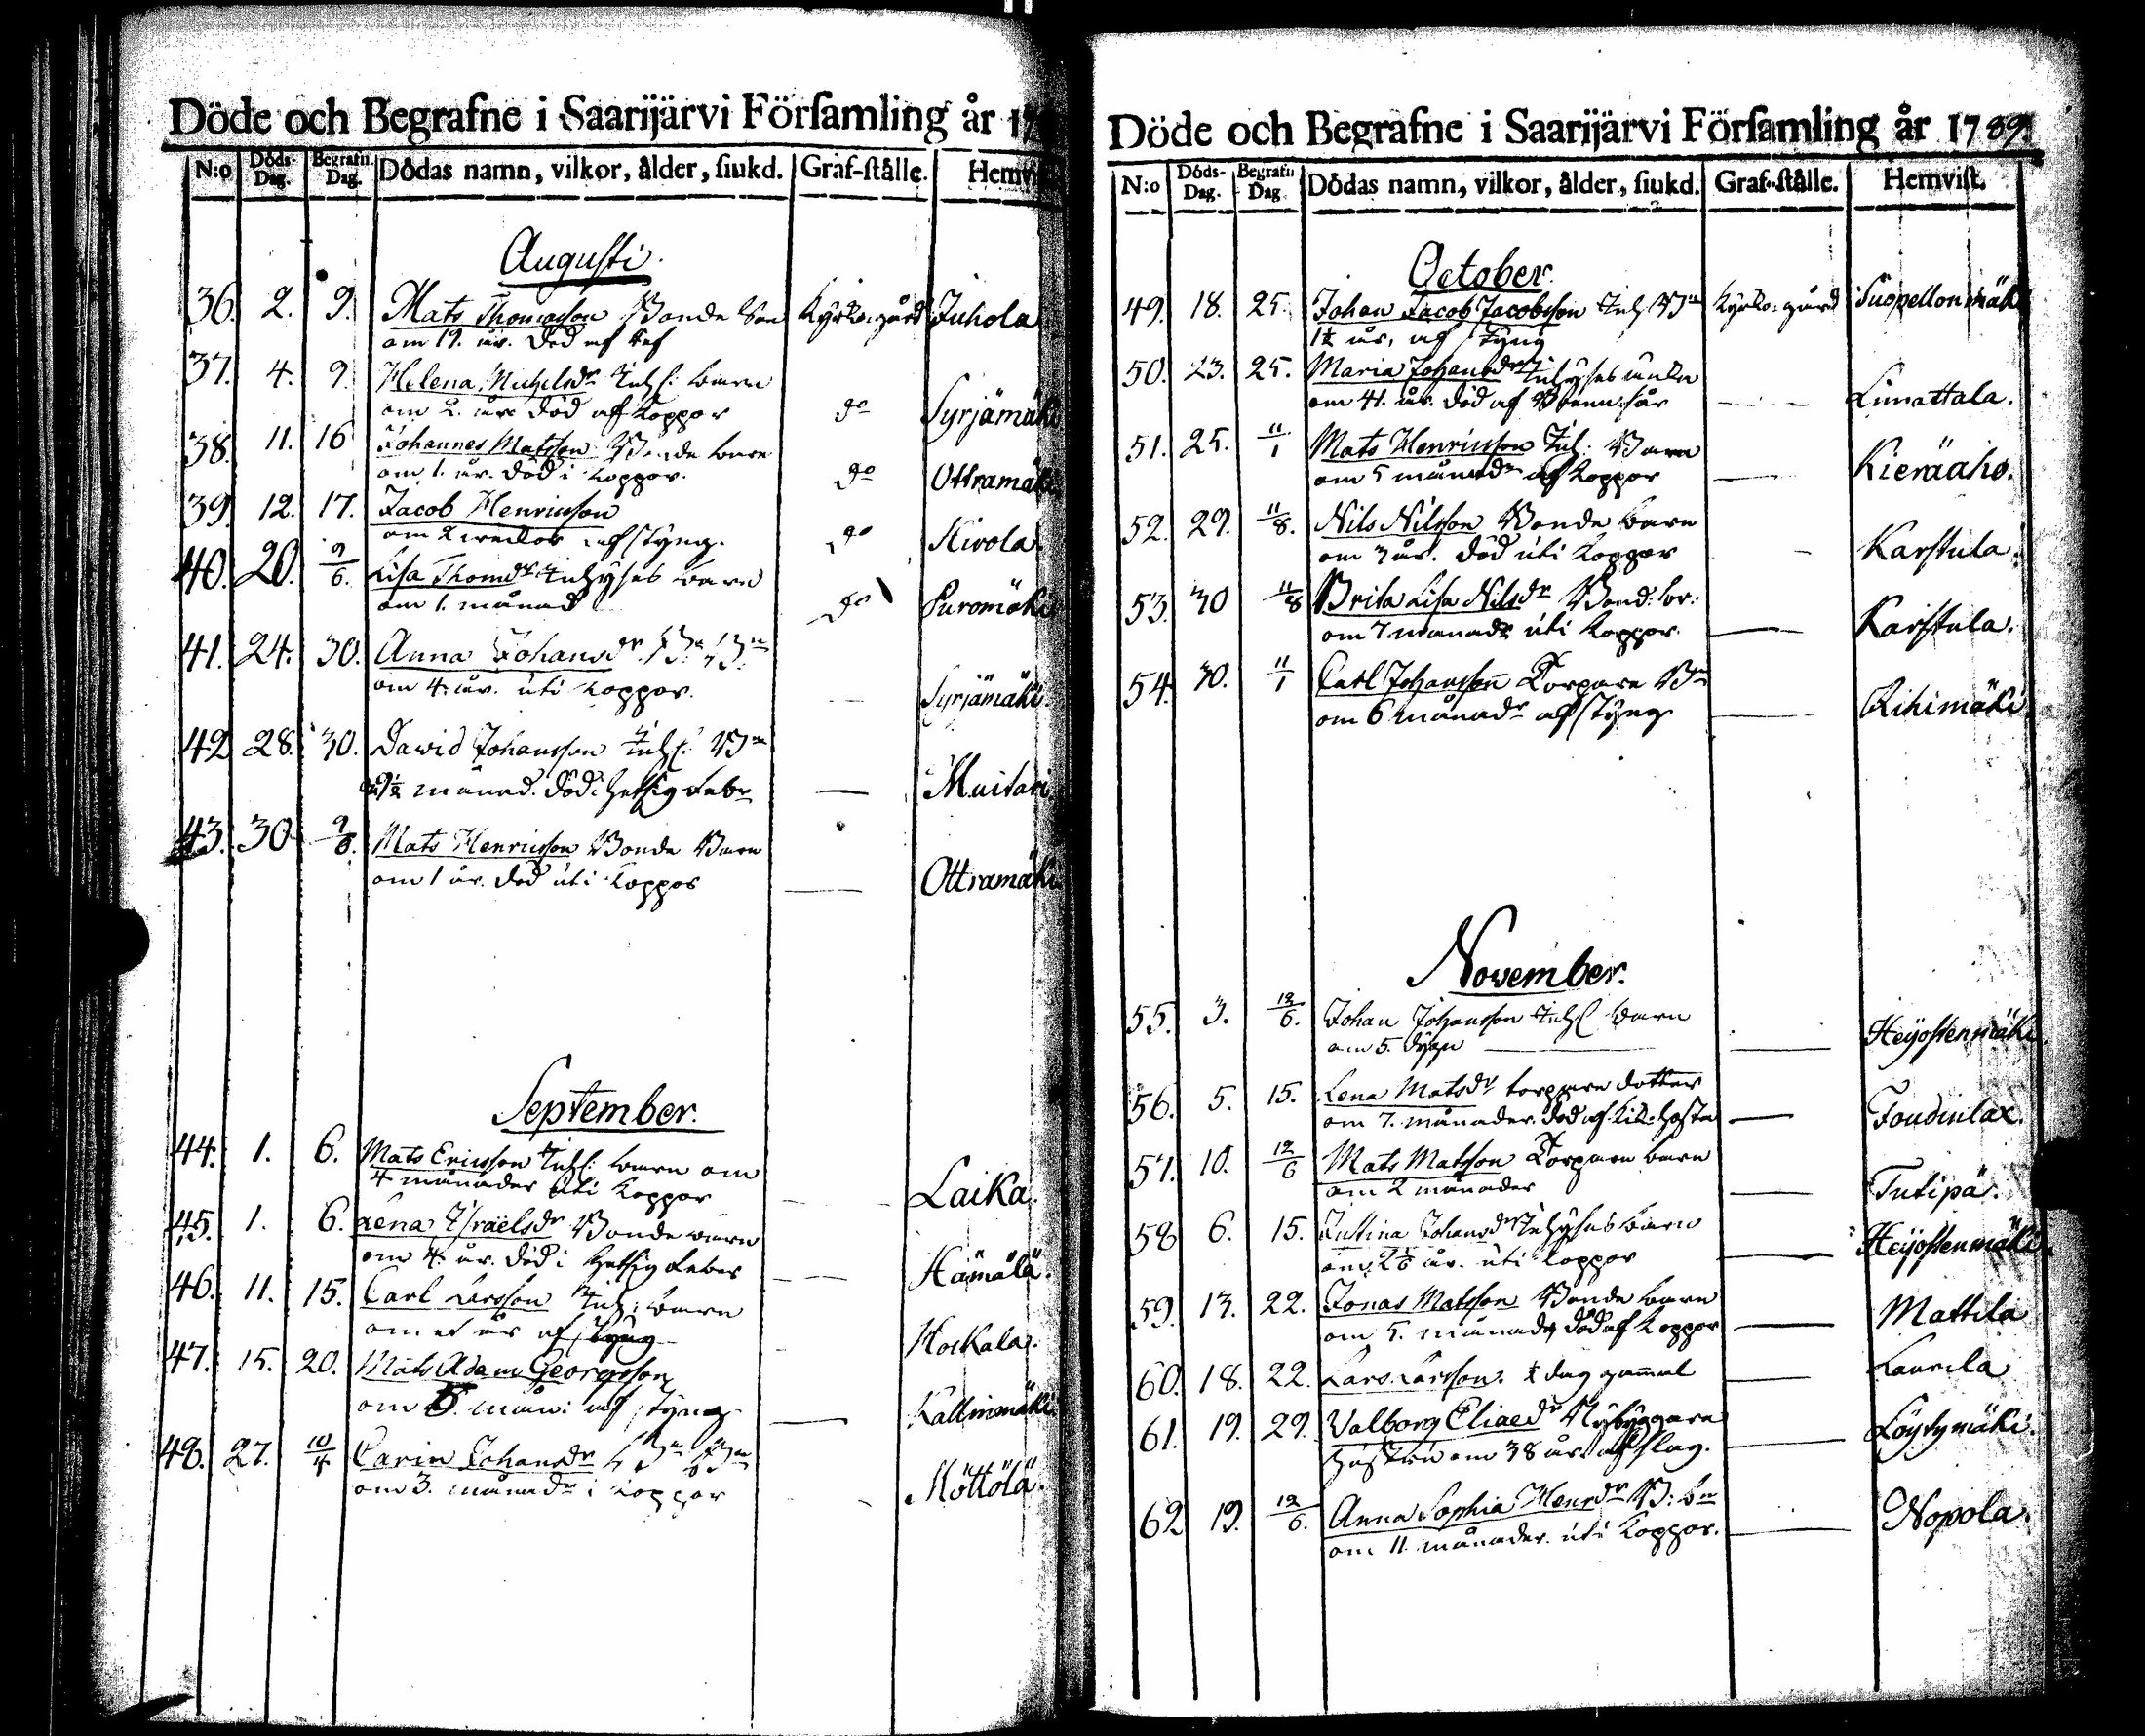 Döde och Begrafne i Saarijärvi Församling år 17
N:o Döds-Dag. Begrafn. Dag. Dödas namn, vilkor, ålder, siukd. Graf-ställe. Hemvi
Augusti.
36. 2. 9. Mats Thomasson Bonde Son Kyrko-gård Juhola
om 19. år. död af
37. 4. 9. Helena Michelsdr Inhs: barn
om 2. år död af Koppor do Syrjämäki
38. 11. 16 Johannes Matsson Bonde barn
om 1. år. död i Koppor. do Ottramäki
39. 12. 17. Jacob Henricsson
om 2 weckor af styng. do Kivola
40. 20. 9/6. Lisa Thomdr Inhyses barn
om 1. månad do Puromäki
41. 24. 30. Anna Johansdr
om 4. år. uti Koppor. Syrjämäki
42 28. 30. David Johansson Inhs: Bn
månad. död i hetsig feber Muitari
43. 30 9/8. Mats Henricsson Bonde Barn
om 1 år. död uti Koppor Ottramäki
September.
44. 1. 6. Mats Ericsson Inhs: barn om
4 månader uti Koppor Laika.
45. 1. 6. Lena Israëlsdr Bonde barn
om 4. år. död i hetsig feber Hämälä.
46. 11. 15. Carl Larsson Inh: barn
om et år af styng Hoikala.
47. 15. 20. Mats Adam Georgsson
om 5. mån: af styng Kallinmäki
48. 27. 10/4 Carin Johansdr
om 3. månadr i Koppor Möttölä.
Döde och Begrafne i Saarijärvi Församling år 1789.
N:o Döds-Dag. Begrafn Dag Dödas namn, vilkor, ålder, siukd. Graf-ställe. Hemvist.
October.
49. 18. 25. Johan Jacob Jacobsson Inh Bn Kyrko-gård Suopellonmäki
år, af styng
50. 23. 25. Maria Johansdr Inhyses
om 41. år. död af Limattala.
51. 25. 11/1 Mats Henricsson Inh: Barn
om 5 månadr af Koppor Kieräaho.
52. 29. 11/8. Nils Nilsson Bonde barn
om 3 år. död uti Koppor Karstula.
53. 30 11/8 Brita Lisa Nilsdr Bond: br:
om 7 månadr uti Koppor. Karstula.
54. 30. 11/1 Carl Johansson Torpare Bn
om 6 månadr af styng Rihimäki
November.
55. 3. 12/6. Johan Johansson Inhs barn
om 5. dygn Heijostenmäki
56. 5. 15. Lena Matsdr torpare dotter
om 7. månader. död af Kik-hosta Toudinlax.
57. 10. 12/6 Mats Matsson Torpare barn
om 2 månader Tutipä.
58 6. 15. Justina Johansdr Inhyses barn
år. uti Koppor Heijostenmäki
59. 13. 22. Jonas Matsson Bonde barn
om 5. månadr död af Koppor Mattila
60. 18. 22. Lars Larsson. dag gammal Laurila
61. 19. 29. Valborg Eliaedr Nybyggare
hustru om 38 år af slag. Löytymäki.
62 19. 12/6. Anna Sophia Henrdr B: bn
om 11 månader. uti Koppor. Nopola.